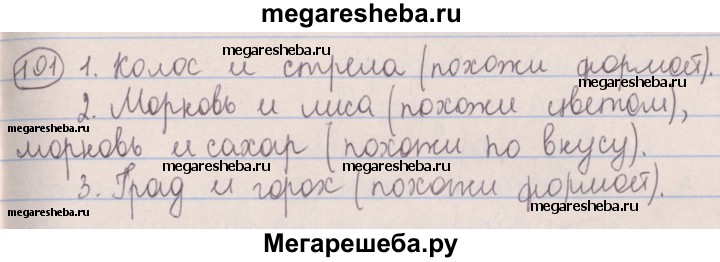 megaresheba.ru
megaresheba.ru
101 1. Колос и стрела (похожи формой).
megaresheba.ru
2. Морковь и лиса (похожи цветом),
megaresheba.ru megaresheba.ru
морковь и сахар (похожи по вкусу).
megaresheba.ru megaresheba.ru
3. Град и горох (похожи формой).
megaresheba.ru megaresheba.ru
Мегарешеба.ру